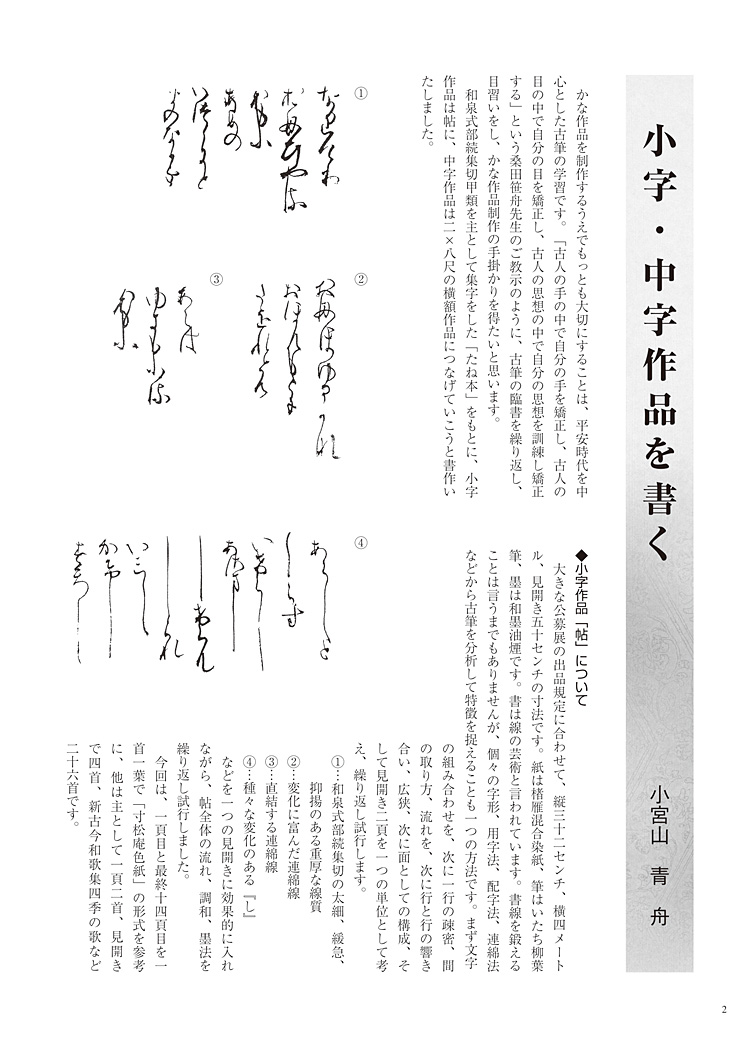 小字・中字作品を書く
小宮山 青舟
かな作品を制作するうえでもっとも大切にすることは、平安時代を中
心とした古筆の学習です。「古人の手の中で自分の手を矯正し、古人の
目の中で自分の目を矯正し、古人の思想の中で自分の思想を訓練し矯正
する」という桑田笹舟先生のご教示のように、古筆の臨書を繰り返し、
目習いをし、かな作品制作の手掛かりを得たいと思います。
和泉式部続集切甲類を主として集字をした「たね本」をもとに、小字
作品は帖に、中字作品は二×八尺の横額作品につなげていこうと書作い
たしました。
①
②
③
④
◆小字作品「帖」について
大きな公募展の出品規定に合わせて、縦三十二センチ、横四メート
ル、見開き五十センチの寸法です。紙は楮雁混合染紙、筆はいたち柳葉
筆、墨は和墨油煙です。書は線の芸術と言われています。書線を鍛える
ことは言うまでもありませんが、個々の字形、用字法、配字法、連綿法
などから古筆を分析して特徴を捉えることも一つの方法です。まず文字
の組み合わせを、次に一行の疎密、間
の取り方、流れを、次に行と行の響き
合い、広狭、次に面としての構成、そ
して見開き二頁を一つの単位として考
え、繰り返し試行します。
①…和泉式部続集切の太細、緩急、
抑揚のある重厚な線質
②…変化に富んだ連綿線
③…直結する連綿線
④…種々な変化のある『し』
などを一つの見開きに効果的に入れ
ながら、帖全体の流れ、調和、墨法を
繰り返し試行しました。
今回は、一頁目と最終十四頁目を一
首一葉で「寸松庵色紙」の形式を参考
に、他は主として一頁二首、見開き
で四首、新古今和歌集四季の歌など
二十六首です。
2